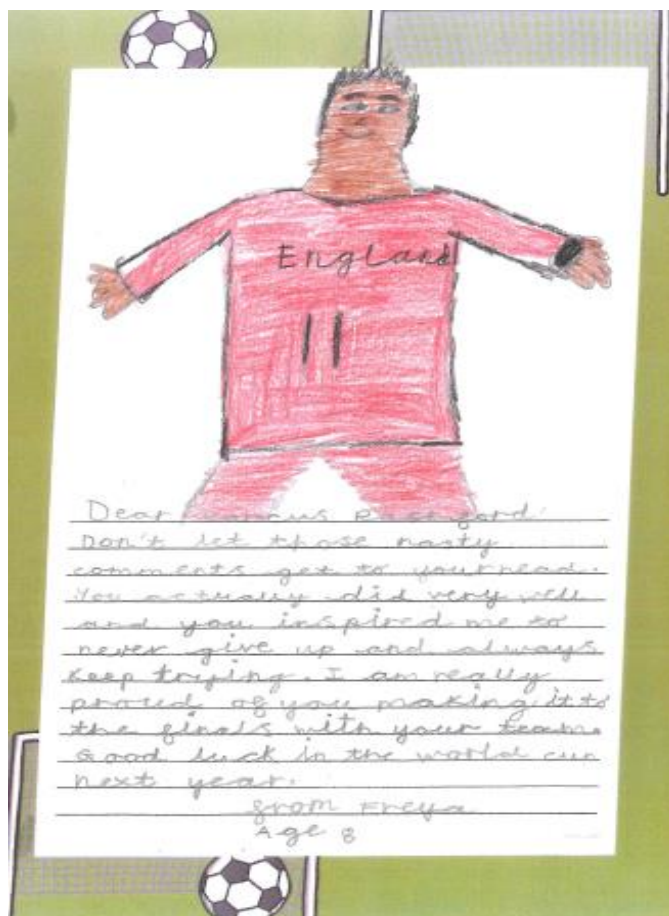 England
11
Dear Marcus Rashford.
Don't let those nasty
comments get to your head.
You actually did very well
and you inspired me to
never give up and always
Keep trying. I am really
proud of you making it to
the finals with your team.
Good luck in the world cup
next year.
from Freya
Age 8